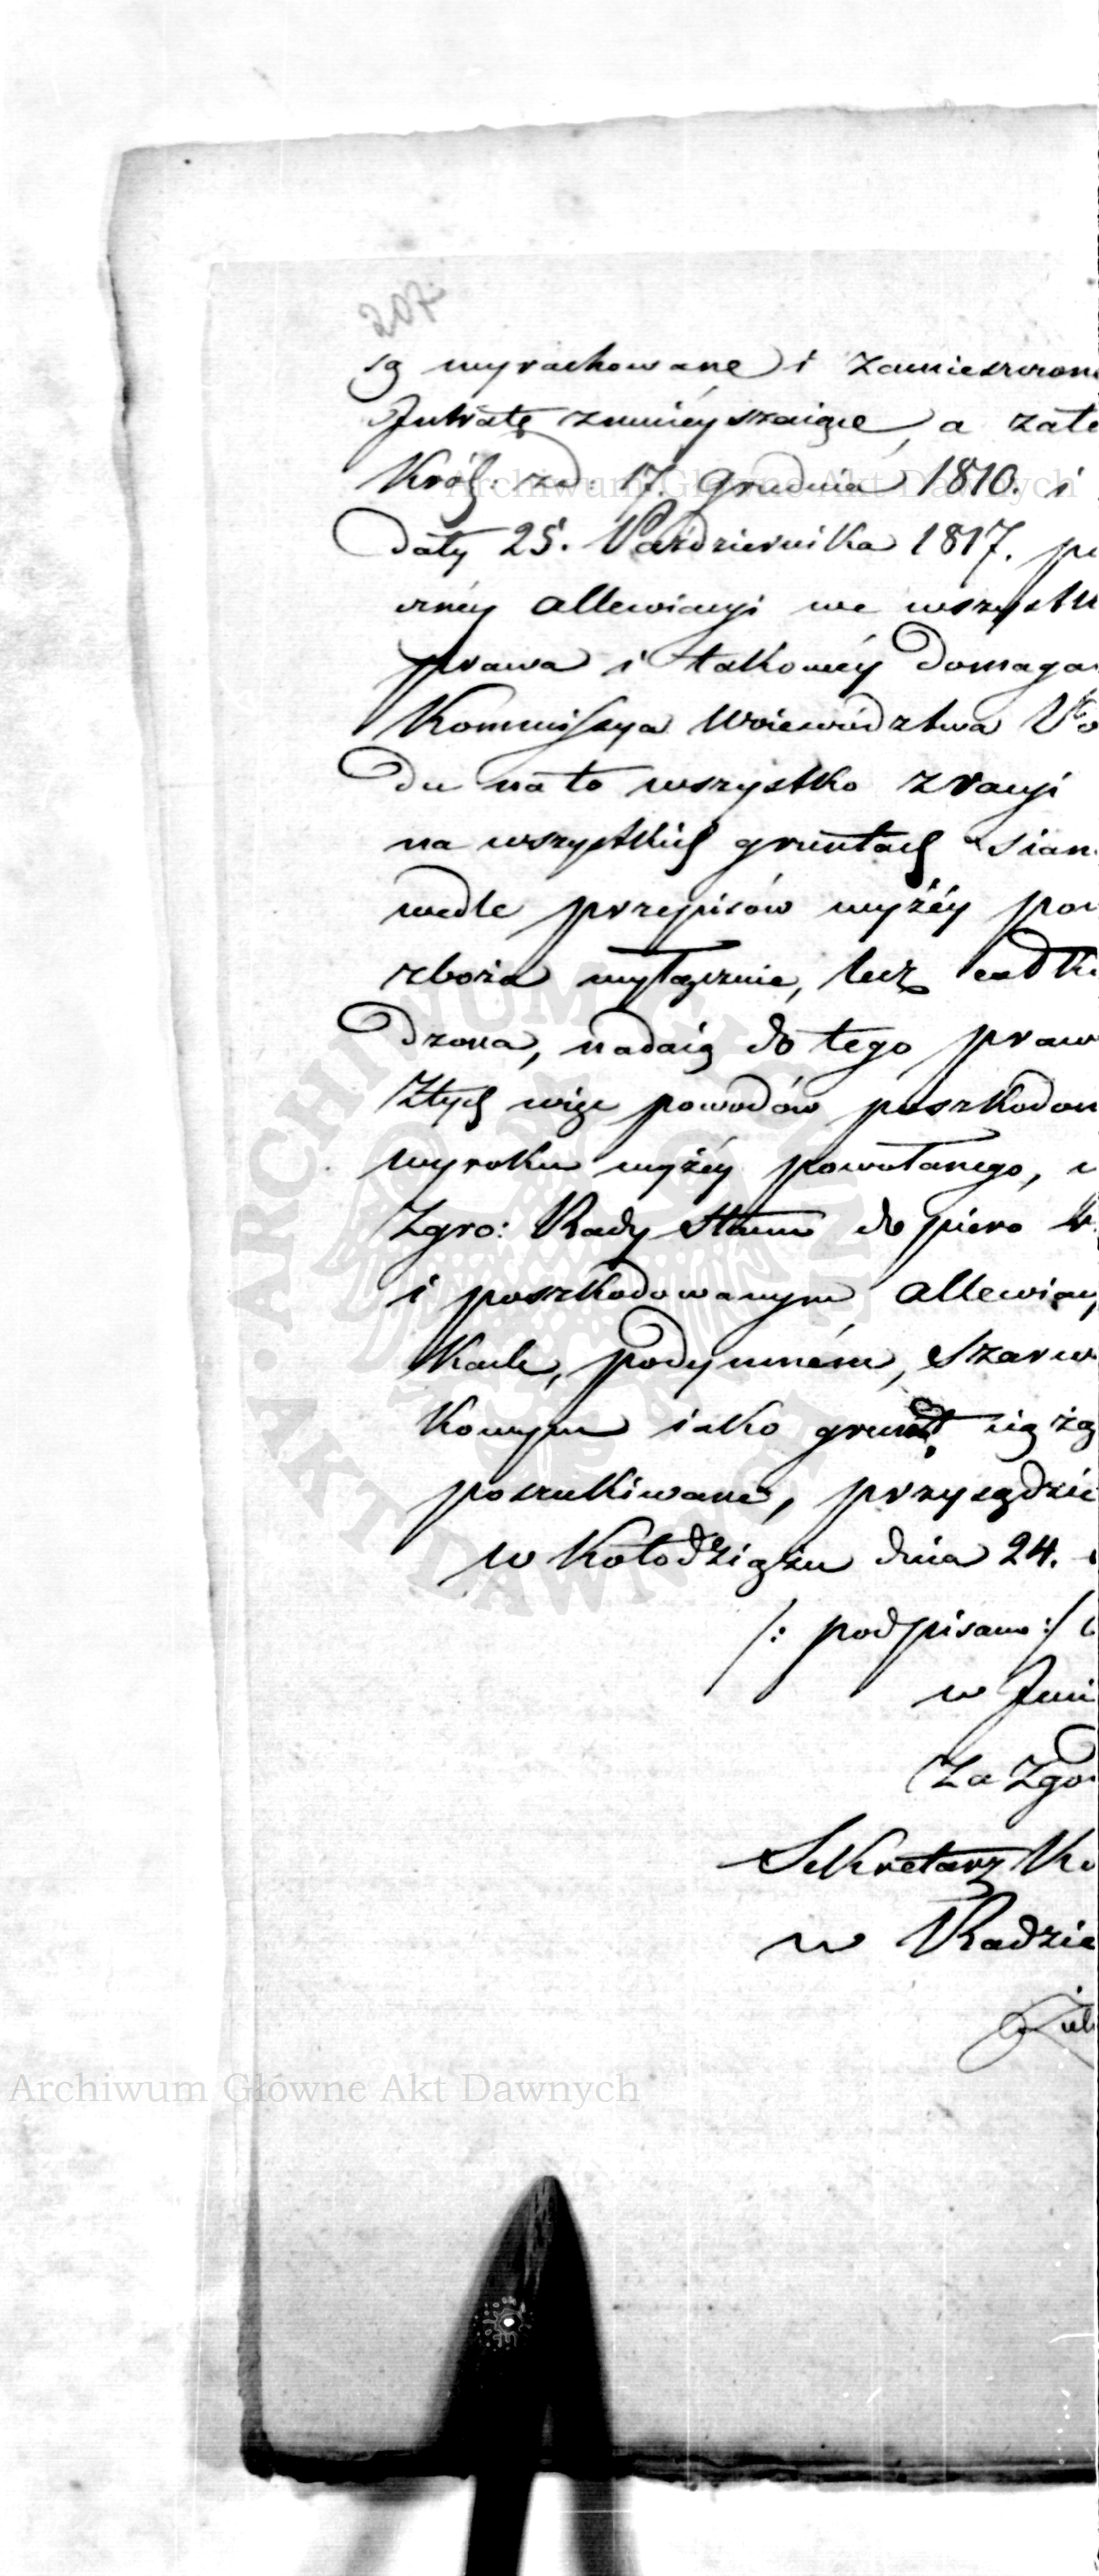 207
są wyrachowane i zamieszczon
Intratę zmnieyszaiące, a zate
Król: zd. 17. Grudnia 1810. i
daty 25. Października 1817. p
czney allewiacyi we wszystk
prawa i takowéy domaga
Kommissya Woiewództwa Po
du na to wszystko z racyi
na wszystkich gruntach sian
wedle przepisów wyżéy po
zboża wyłącznie, lecz
dzona, nadaią do tego praw
Z tych więc powodów poszkodow
wyroku wyżéy powołanego,
Zgro: Rady Stanu dopiero
i poszkodowanym allewiacy
podymném, Szarw
kowym iako grunt
poszukiwane, przysądzi
w Kołodziążu dnia 24.
/: podpisano :/
w Imi
Za Zgo
Sekretarz Ko
w Radzie
Archiwum Główne Akt Dawnych
Archiwum Główne Akt Dawnych
ARCHIWUM GŁÓWNE AKT DAWNYCH